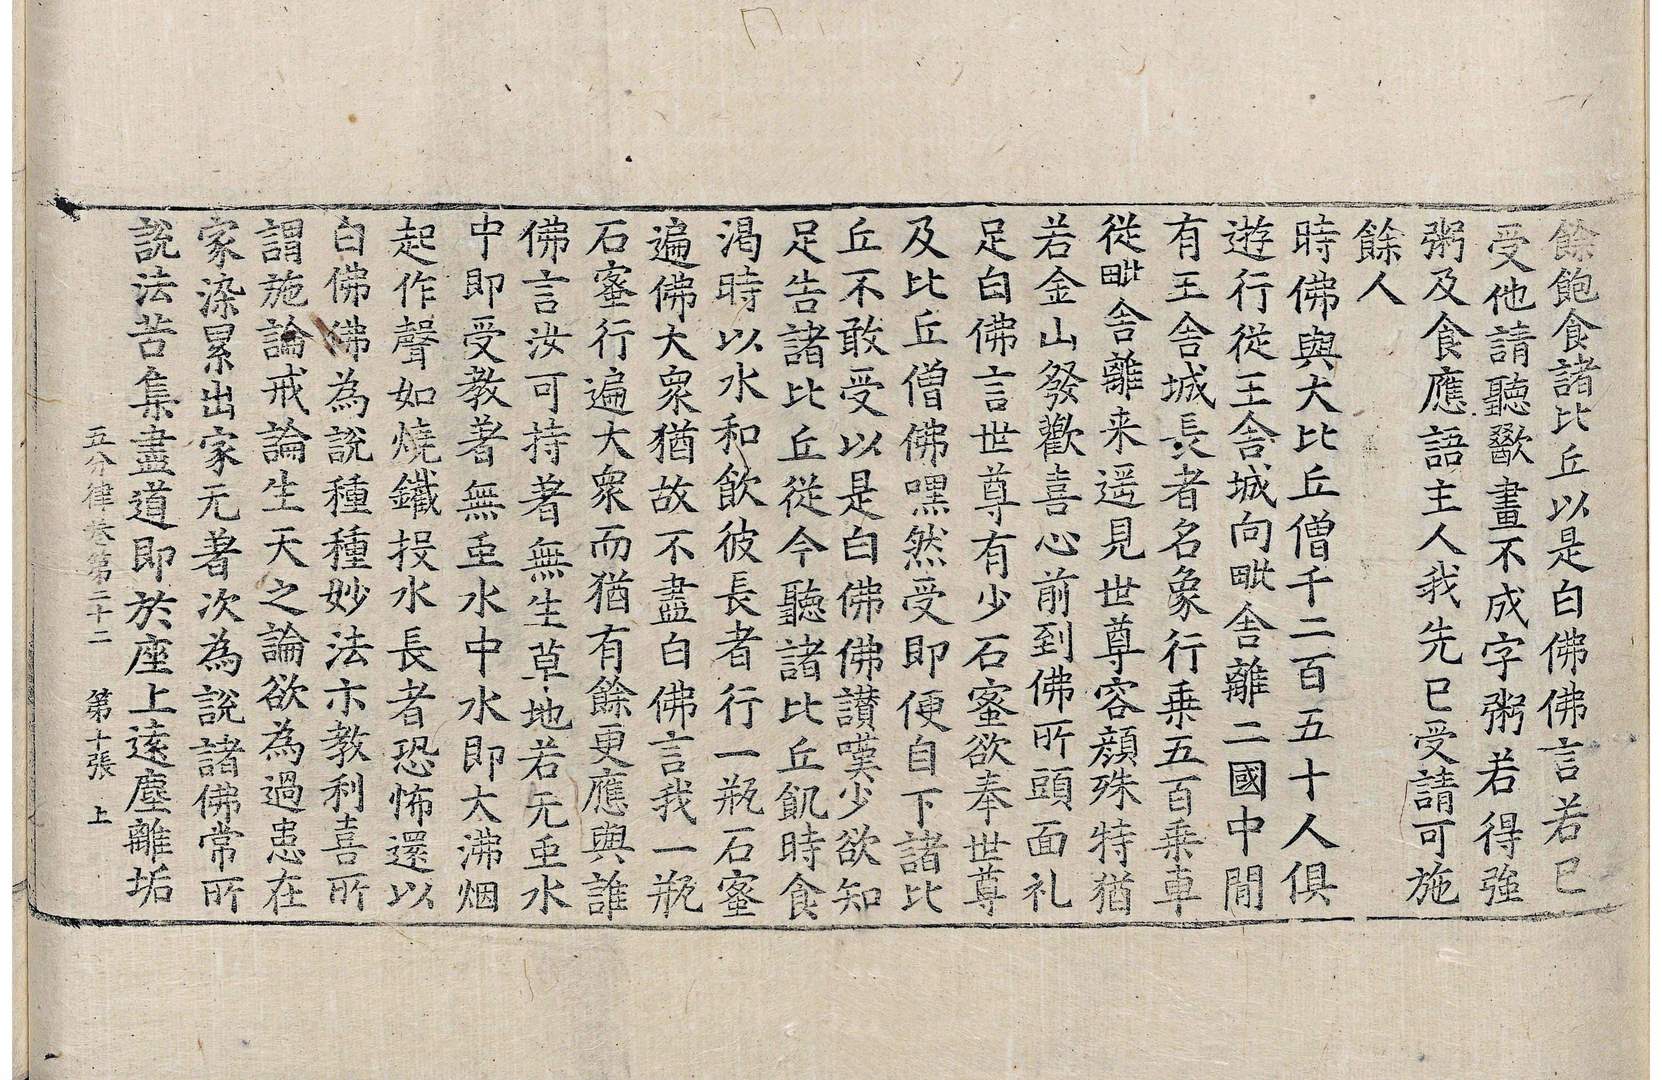 餘飽食諸比丘以是白佛佛言若已
受他請聽歠畫不成字粥若得強
粥及食應語主人我先已受請可施
餘人
時佛與大比丘僧千二百五十人俱
遊行從王舍城向毗舍離二國中間
有王舍城長者名象行乘五百乘車
從毗舍離来遥見世尊容顔殊特猶
若金山發歡喜心前到佛所頭面礼
足白佛言世尊有少石蜜欲奉世尊
及比丘僧佛嘿然受即便自下諸比
丘不敢受以是白佛佛讃嘆少欲知
足告諸比丘從今聽諸比丘飢時食
渴時以水和飲彼長者行一瓶石蜜
遍佛大衆猶故不盡白佛言我一瓶
石蜜行遍大衆而猶有餘更應與誰
佛言汝可持著無生草地若无虫水
中即受教著無虫水中水即大沸烟
起作聲如燒鐵投水長者恐怖還以
白佛佛為說種種妙法示教利喜所
謂施論戒論生天之論欲為過患在
家染累出家无著次為說諸佛常所
說法苦集盡道即於座上遠塵離垢
五分律卷第二十二 第十張 上